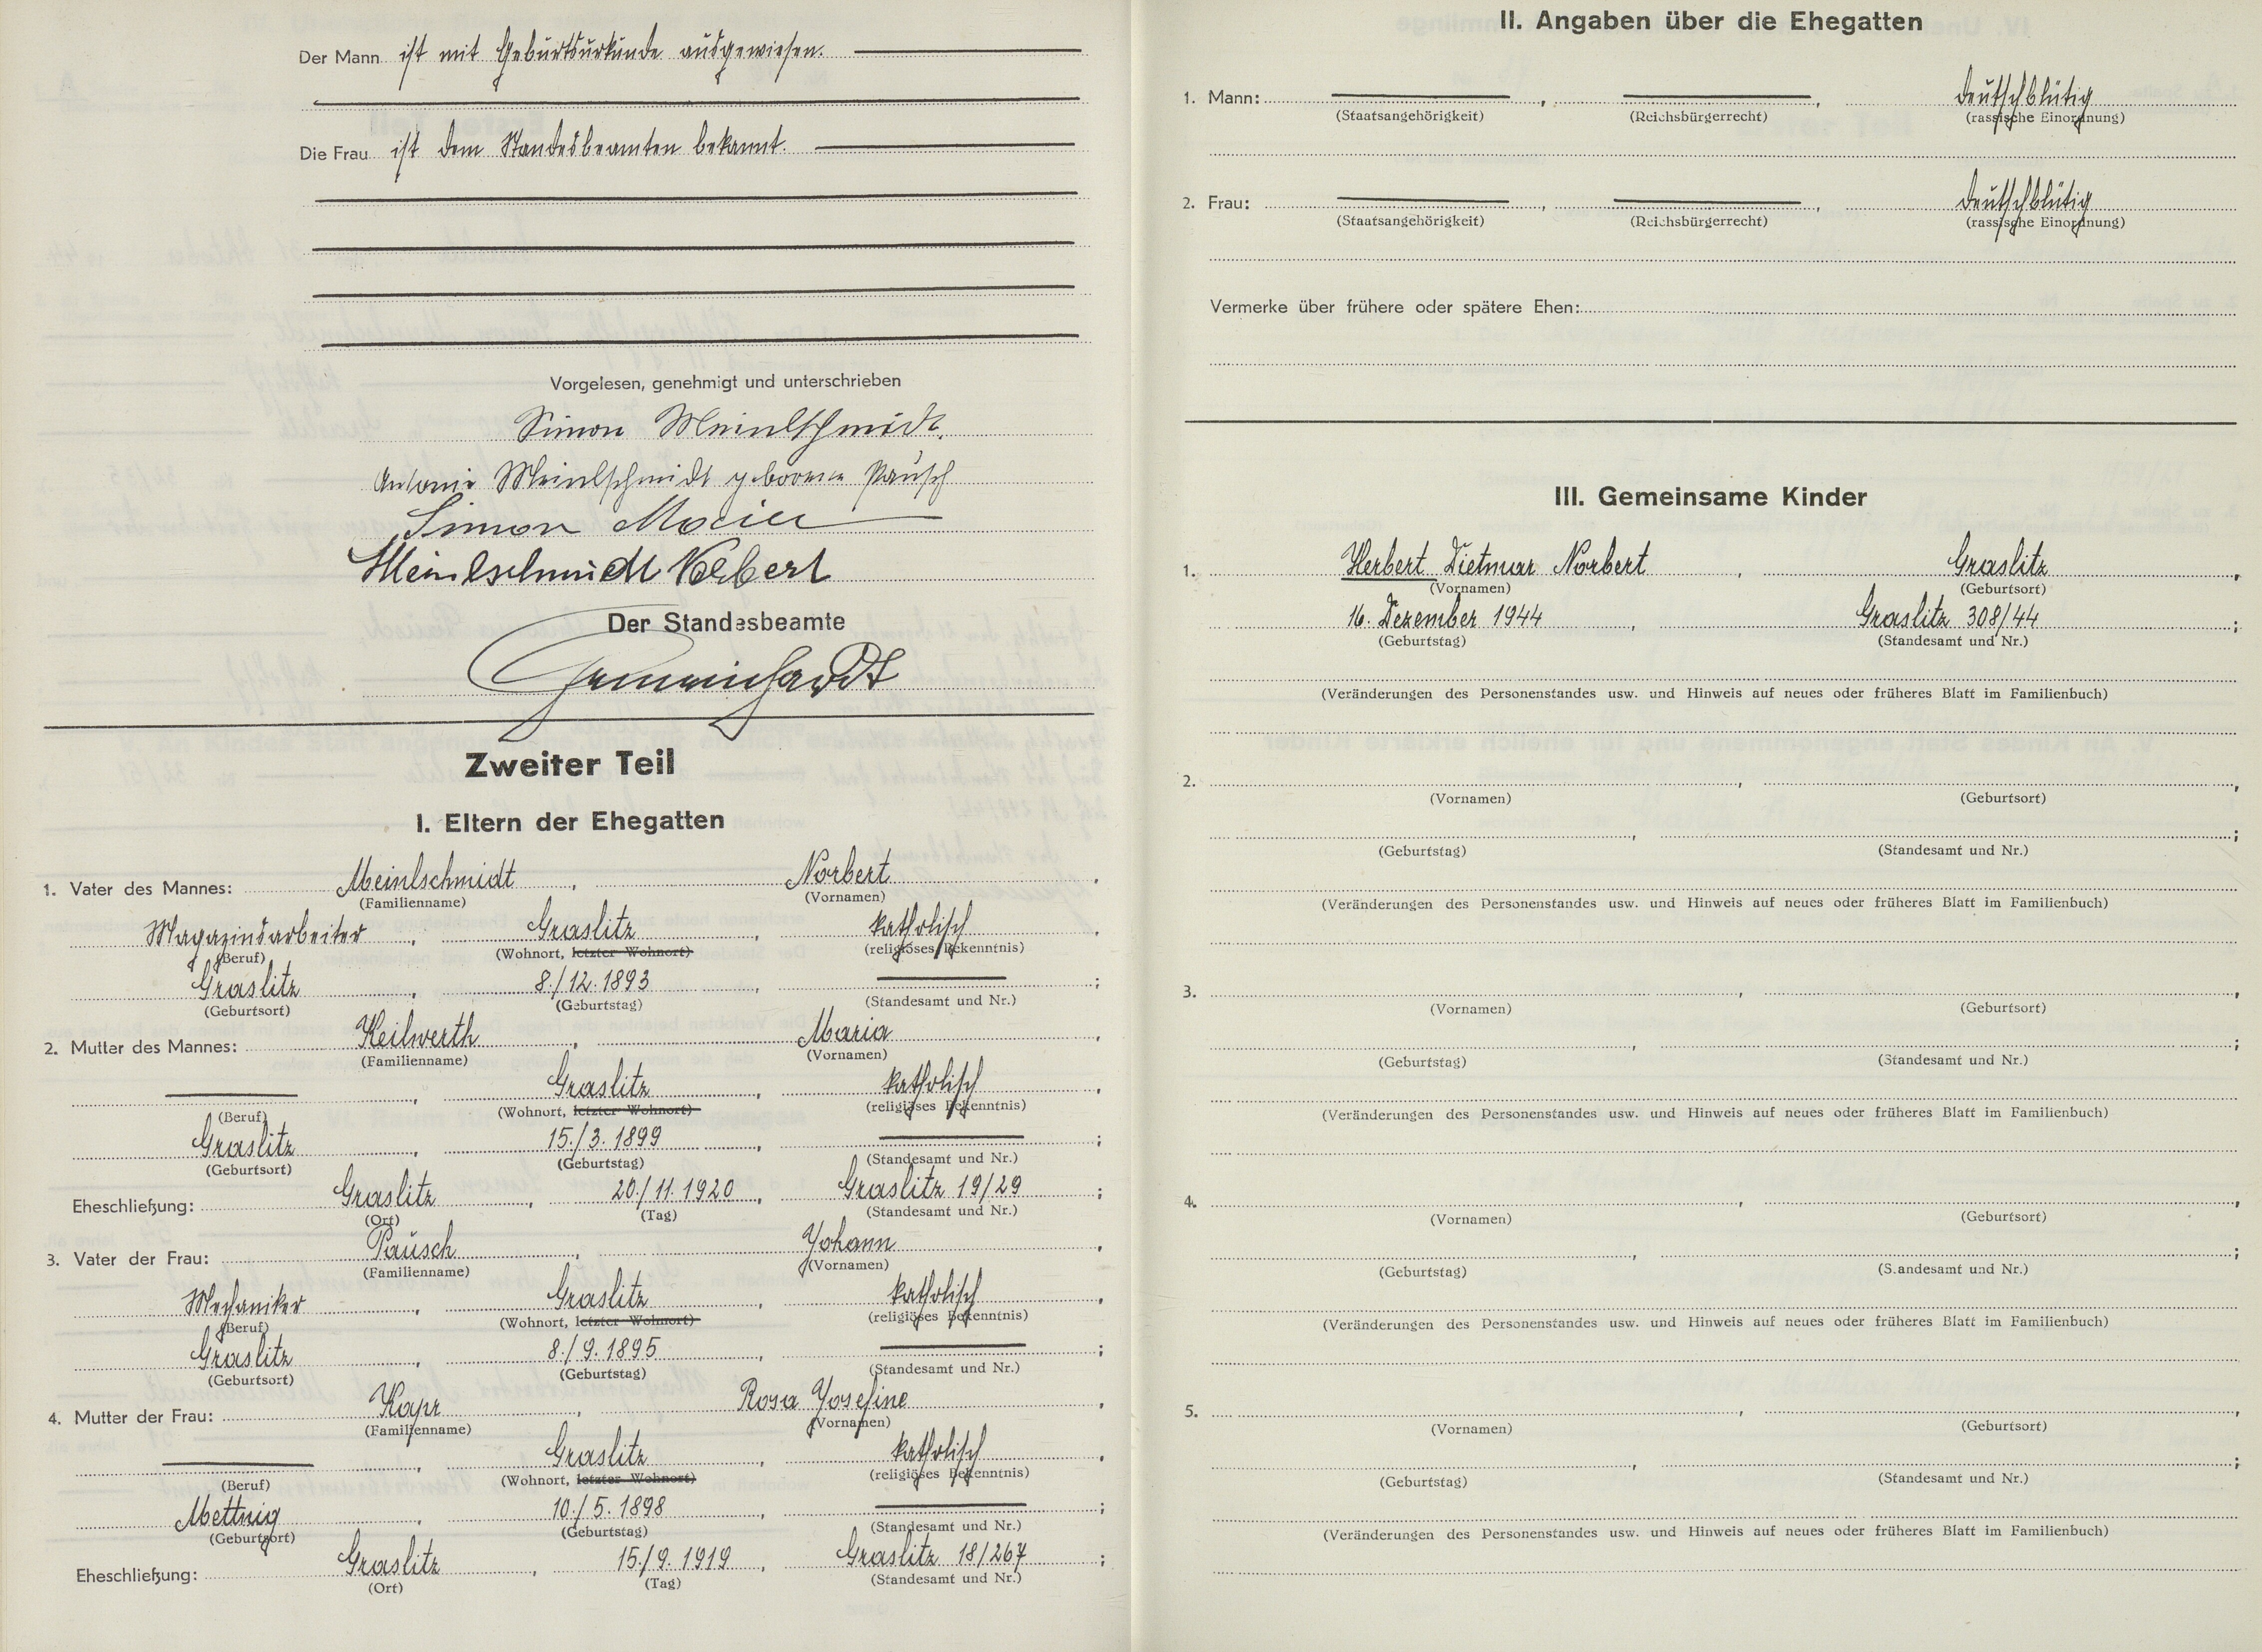 Der Mann ist mit Geburtsurkunde ausgewiesen.
Die Frau ist dem Standesbeamten bekannt.
Vorgelesen, genehmigt und unterschrieben
Simon Meinlschmidt.
Antonie Meinlschmidt geborene Pausch
Simon
Meinlschmidt Norbert
Der Standesbeamte
Zweiter Teil
I. Eltern der Ehegatten
1. Vater des Mannes: Meinlschmidt, Norbert,
(Familienname) (Vornamen)
Magazinsarbeiter, Graslitz, katholisch,
(Beruf) (Wohnort, letzter Wohnort) (religiöses Bekenntnis)
Graslitz, 8./12.1893, ;
(Geburtsort) (Geburtstag) (Standesamt und Nr.)
2. Mutter des Mannes: Keilwerth, Maria,
(Familienname) (Vornamen)
, Graslitz, katholisch,
(Beruf) (Wohnort, letzter Wohnort) (religiöses Bekenntnis)
Graslitz, 15./3.1899, ;
(Geburtsort) (Geburtstag) (Standesamt und Nr.)
Eheschließung: Graslitz, 20./11.1920, Graslitz 19/29;
(Ort) (Tag) (Standesamt und Nr.)
3. Vater der Frau: Pausch, Johann,
(Familienname) (Vornamen)
Mechaniker, Graslitz, katholisch,
(Beruf) (Wohnort, letzter Wohnort) (religiöses Bekenntnis)
Graslitz, 8./9.1895, ;
(Geburtsort) (Geburtstag) (Standesamt und Nr.)
4. Mutter der Frau: Kapr, Rosa Josefine,
(Familienname) (Vornamen)
, Graslitz, katholisch,
(Beruf) (Wohnort, letzter Wohnort) (religiöses Bekenntnis)
Mettnig, 10./5.1898, ;
(Geburtsort) (Geburtstag) (Standesamt und Nr.)
Eheschließung: Graslitz, 15./9.1919, Graslitz 18/267;
(Ort) (Tag) (Standesamt und Nr.)
II. Angaben über die Ehegatten
1. Mann: , , deutschblütig
(Staatsangehörigkeit) (Reichsbürgerrecht) (rassische Einordnung)
2. Frau: , , deutschblütig
(Staatsangehörigkeit) (Reichsbürgerrecht) (rassische Einordnung)
Vermerke über frühere oder spätere Ehen:
III. Gemeinsame Kinder
1. Herbert Dietmar Norbert, Graslitz,
(Vornamen) (Geburtsort)
16. Dezember 1944, Graslitz 308/44;
(Geburtstag) (Standesamt und Nr.)
(Veränderungen des Personenstandes usw. und Hinweis auf neues oder früheres Blatt im Familienbuch)
2. , ,
(Vornamen) (Geburtsort)
, ;
(Geburtstag) (Standesamt und Nr.)
(Veränderungen des Personenstandes usw. und Hinweis auf neues oder früheres Blatt im Familienbuch)
3. , ,
(Vornamen) (Geburtsort)
, ;
(Geburtstag) (Standesamt und Nr.)
(Veränderungen des Personenstandes usw. und Hinweis auf neues oder früheres Blatt im Familienbuch)
4. , ,
(Vornamen) (Geburtsort)
, ;
(Geburtstag) (Standesamt und Nr.)
(Veränderungen des Personenstandes usw. und Hinweis auf neues oder früheres Blatt im Familienbuch)
5. , ,
(Vornamen) (Geburtsort)
, ;
(Geburtstag) (Standesamt und Nr.)
(Veränderungen des Personenstandes usw. und Hinweis auf neues oder früheres Blatt im Familienbuch)